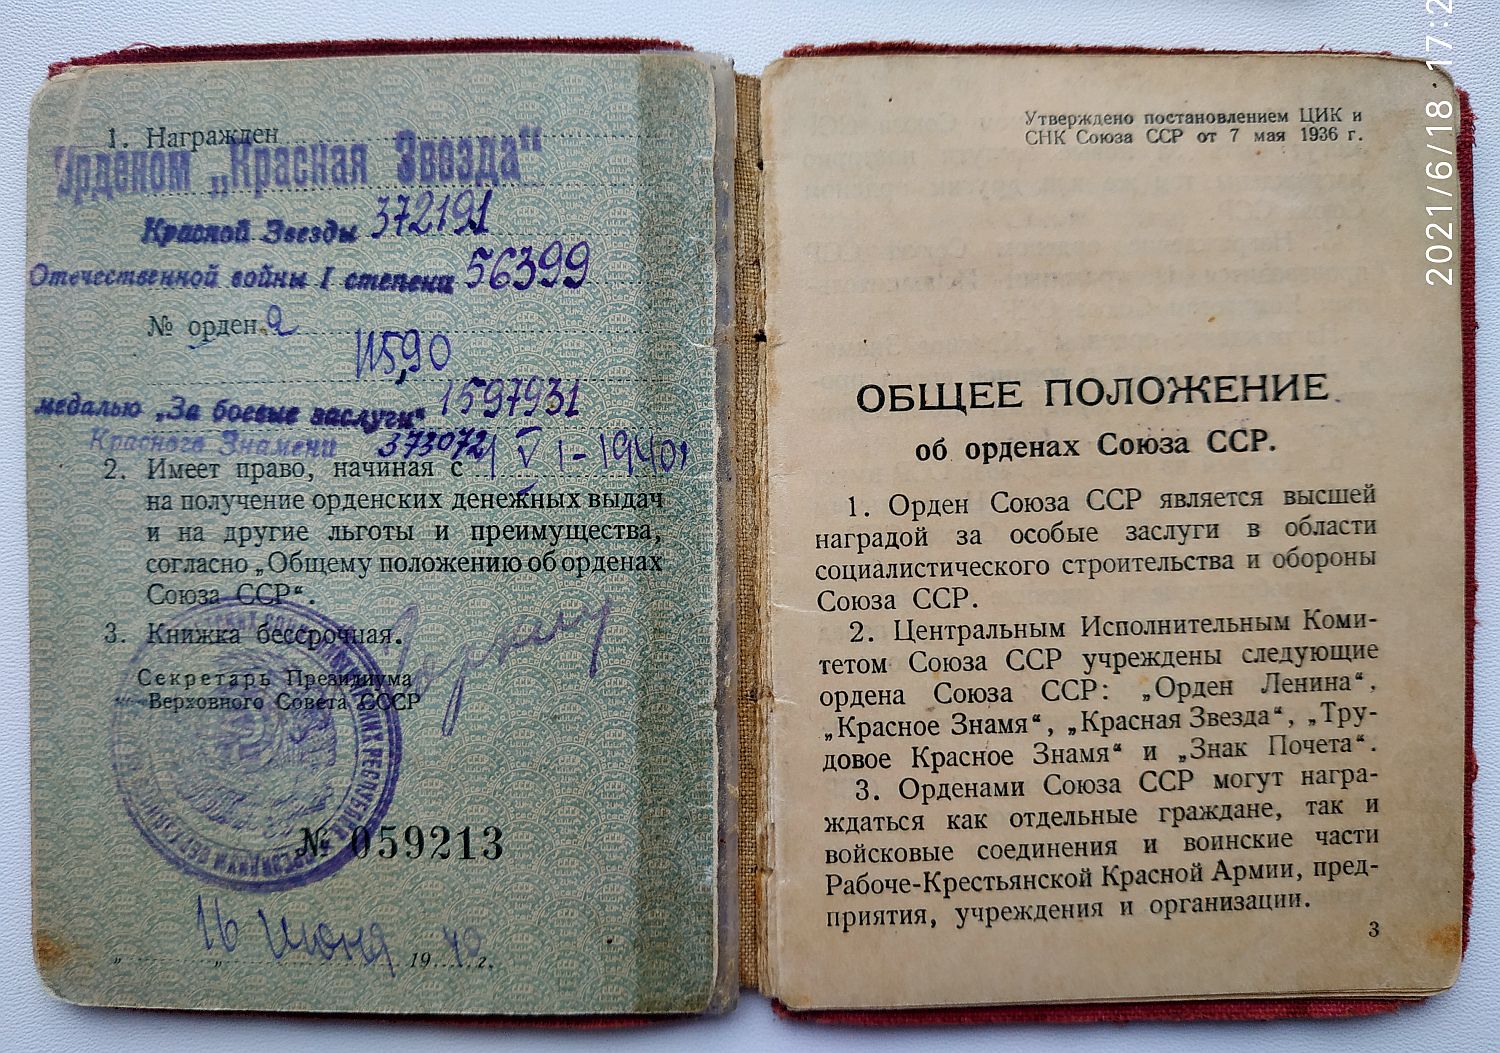 1. Награжден
Орденом „Красная Звезда“
Красной Звезды 372191
Отечественной войны I степени 56399
№ ордена
11590
медалью „За боевые заслуги“ 1597931
Красного Знамени 373072
2. Имеет право, начиная с 1 VI-1940
на получение орденских денежных выдач
и на другие льготы и преимущества,
согласно „Общему положению об орденах
Союза ССР“.
3. Книжка бессрочная.
Секретарь Президиума
Верховного Совета СССР
№ 059213
16 июня 1940 г.
Утверждено постановлением ЦИК и
СНК Союза ССР от 7 мая 1936 г.
ОБЩЕЕ ПОЛОЖЕНИЕ
об орденах Союза ССР.
1. Орден Союза ССР является высшей
наградой за особые заслуги в области
социалистического строительства и обороны
Союза ССР.
2. Центральным Исполнительным Коми-
тетом Союза ССР учреждены следующие
ордена Союза ССР: „Орден Ленина“,
„Красное Знамя“, „Красная Звезда“, „Тру-
довое Красное Знамя“ и „Знак Почета“.
3. Орденами Союза ССР могут награ-
ждаться как отдельные граждане, так и
войсковые соединения и воинские части
Рабоче-Крестьянской Красной Армии, пред-
приятия, учреждения и организации.
3
2021/6/18 17:2